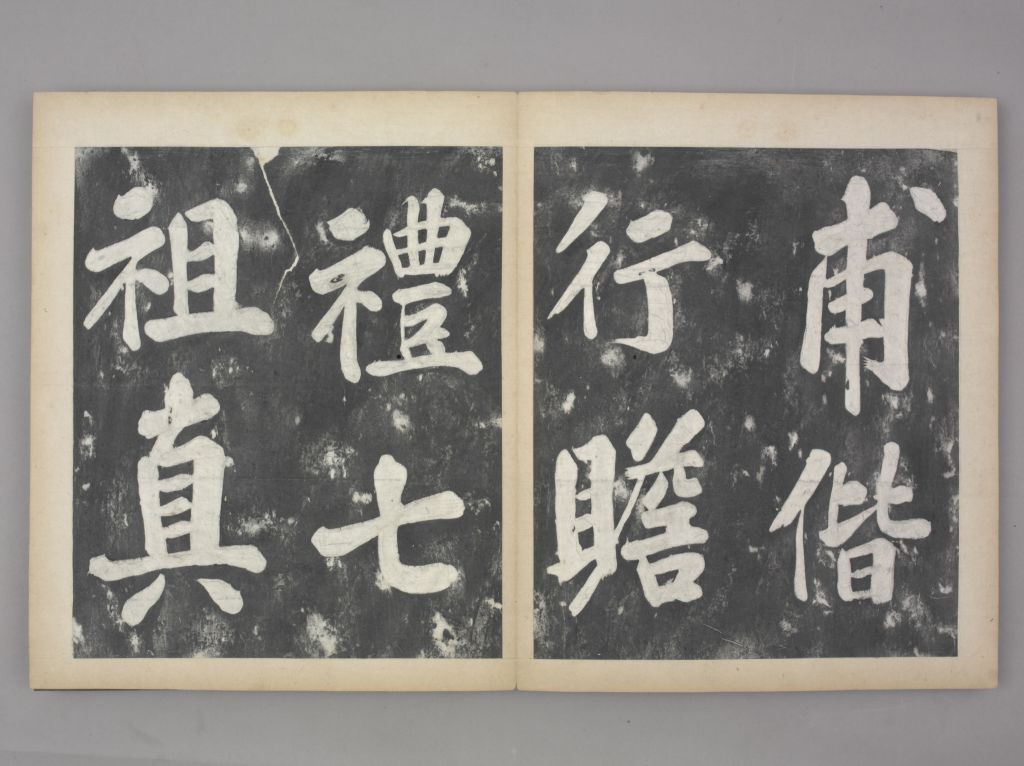 甫偕
行瞻
禮七
祖真